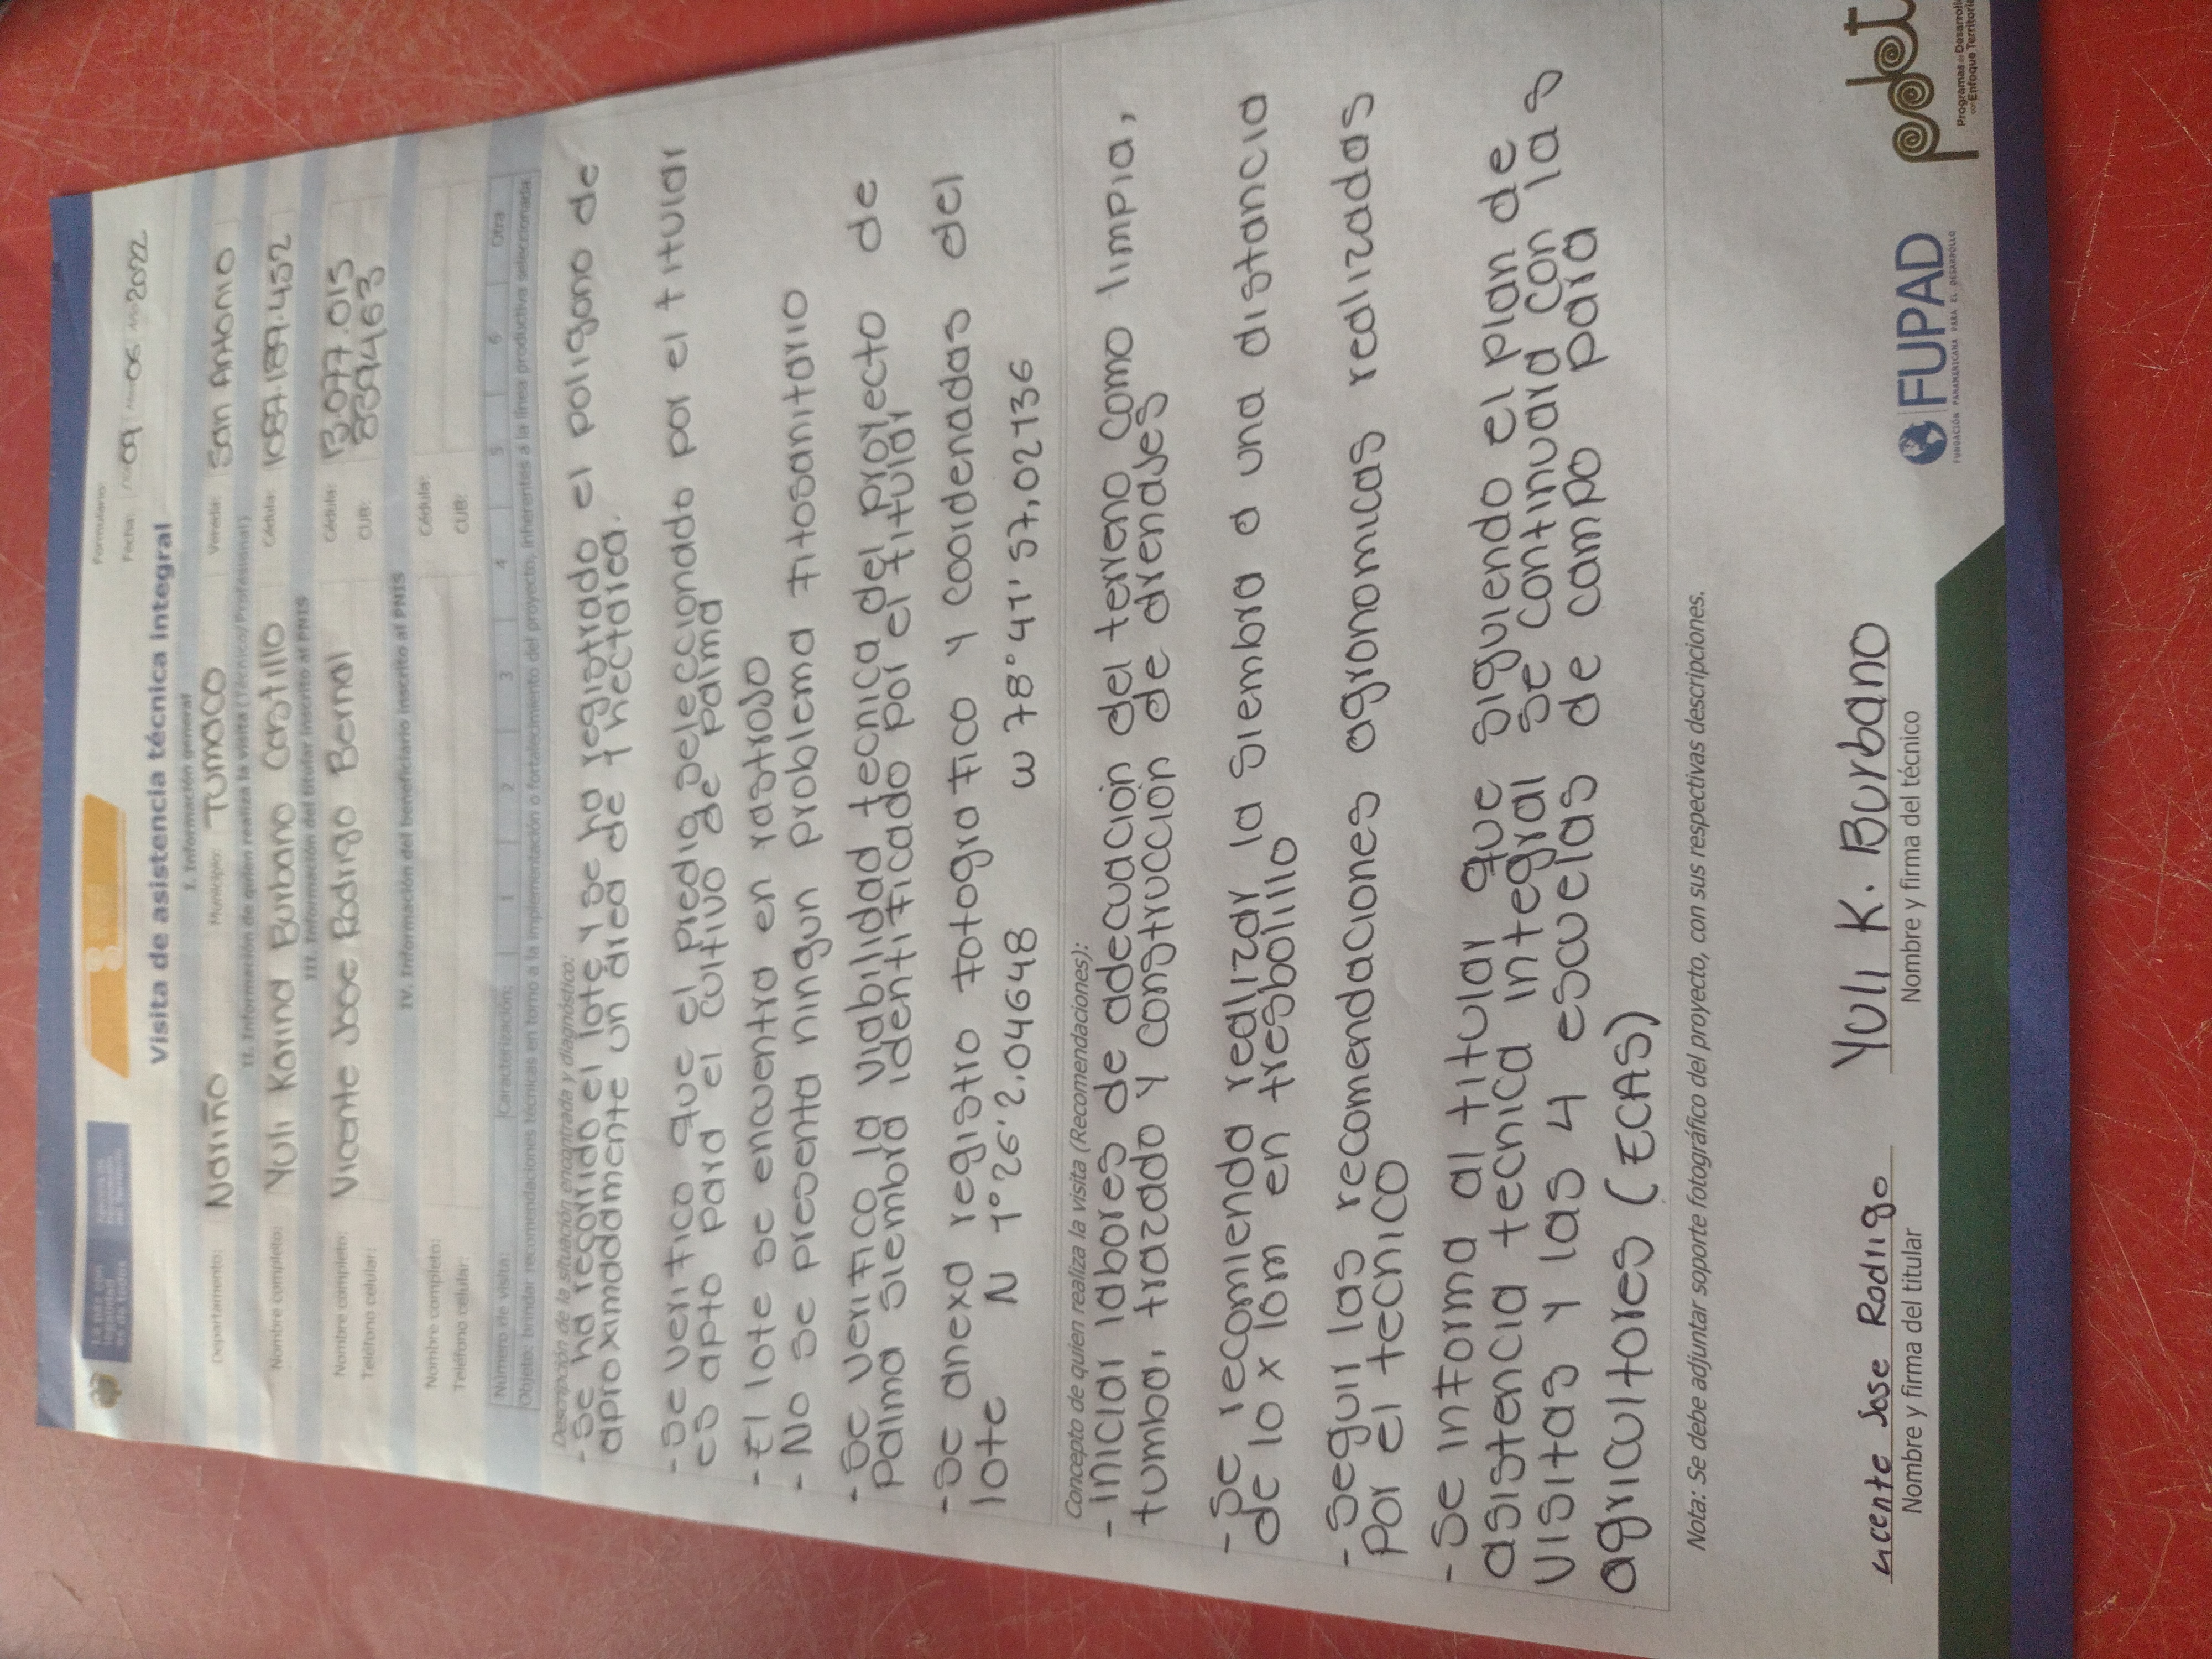 Formulario:
Fecha: 09 06 2022
Visita de asistencia técnica integral
I. Información general
Departamento: Nariño Municipio: Tumaco Vereda: San Antonio
II. Información de quién realiza la visita (Técnico/Profesional)
Nombre completo: Yuli Karina Burbano Castillo Cédula: 1087.189.452
III. Información del titular inscrito al PNIS
Nombre completo: Vicente Jose Rodrigo Bernal Cédula: 13.077.015
Teléfono celular: CUB:
IV. Información del beneficiario inscrito al PNIS
Nombre completo: Cédula:
Teléfono celular: CUB:
Número de visita: Caracterización: 1 2 3 4 5 6 Otra
Objeto: brindar recomendaciones técnicas en torno a la implementación o fortalecimiento del proyecto, inherentes a la línea productiva seleccionada.
Descripción de la situación encontrada y diagnóstico:
- Se ha recorrido el lote y se ha registrado el poligono de
aproximadamente un área de 1 hectárea.
- Se verifico que el predio seleccionado por el titular
es apto para el cultivo de palma
- El lote se encuentra en rastrojo
- No se presenta ningun problema fitosanitario
- Se verifico la viabilidad tecnica del proyecto de
palma siembra identificado por el titular
- Se anexa registro fotografico y coordenadas del
lote N 1°26'2,04648 W 78°41'57,02736
Concepto de quien realiza la visita (Recomendaciones):
- Iniciar labores de adecuación del terreno como limpia,
tumba, trazado y construcción de drenajes
- Se recomienda realizar la siembra a una distancia
de 10 x 10m en tresbolillo
- Seguir las recomendaciones agronomicas realizadas
por el tecnico
- Se informa al titular que siguiendo el plan de
asistencia tecnica integral se continuara con las
visitas y las 4 escuelas de campo para
agricultores (ECAS)
Nota: Se debe adjuntar soporte fotográfico del proyecto, con sus respectivas descripciones.
Vicente Jose Rodrigo Yuli K. Burbano
Nombre y firma del titular Nombre y firma del técnico
FUPAD
FUNDACIÓN PANAMERICANA PARA EL DESARROLLO
pdet
Programas de Desarrollo
con Enfoque Territorial